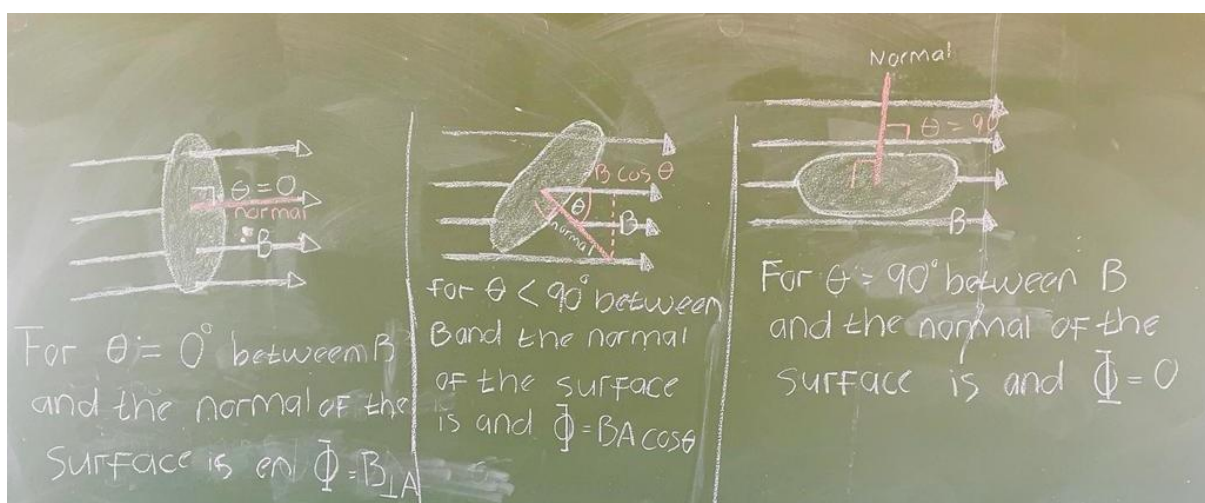 θ = 0
normal
B
For θ = 0° between B
and the normal of the
surface is en Φ = B⊥A
B cos θ
θ
B
normal
for θ < 90° between
B and the normal
of the surface
is and Φ = BA cosθ
Normal
θ = 90
B
For θ = 90° between B
and the normal of the
surface is and Φ = 0